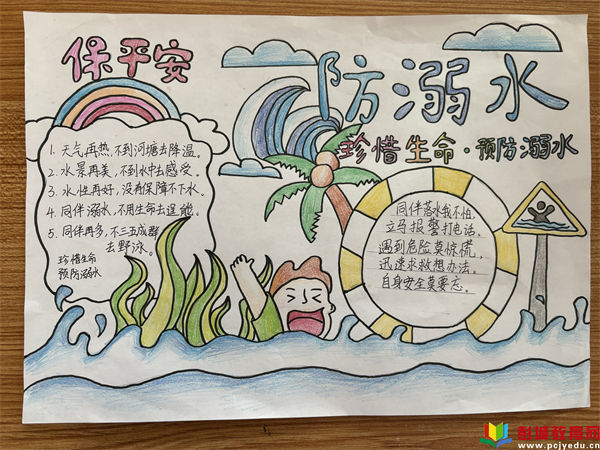 保平安
防溺水
珍惜生命·预防溺水
1. 天气再热,不到河塘去降温。
2. 水景再美,不到水中去感受。
3. 水性再好,没有保障不下水。
4. 同伴溺水,不用生命去逞能。
5. 同伴再多,不三五成群
去野泳。
珍惜生命
预防溺水
同伴落水我不怕,
立马报警打电话。
遇到危险莫惊慌,
迅速求救想办法。
自身安全莫要忘。
彭城教育网
www.pcjyedu.cn